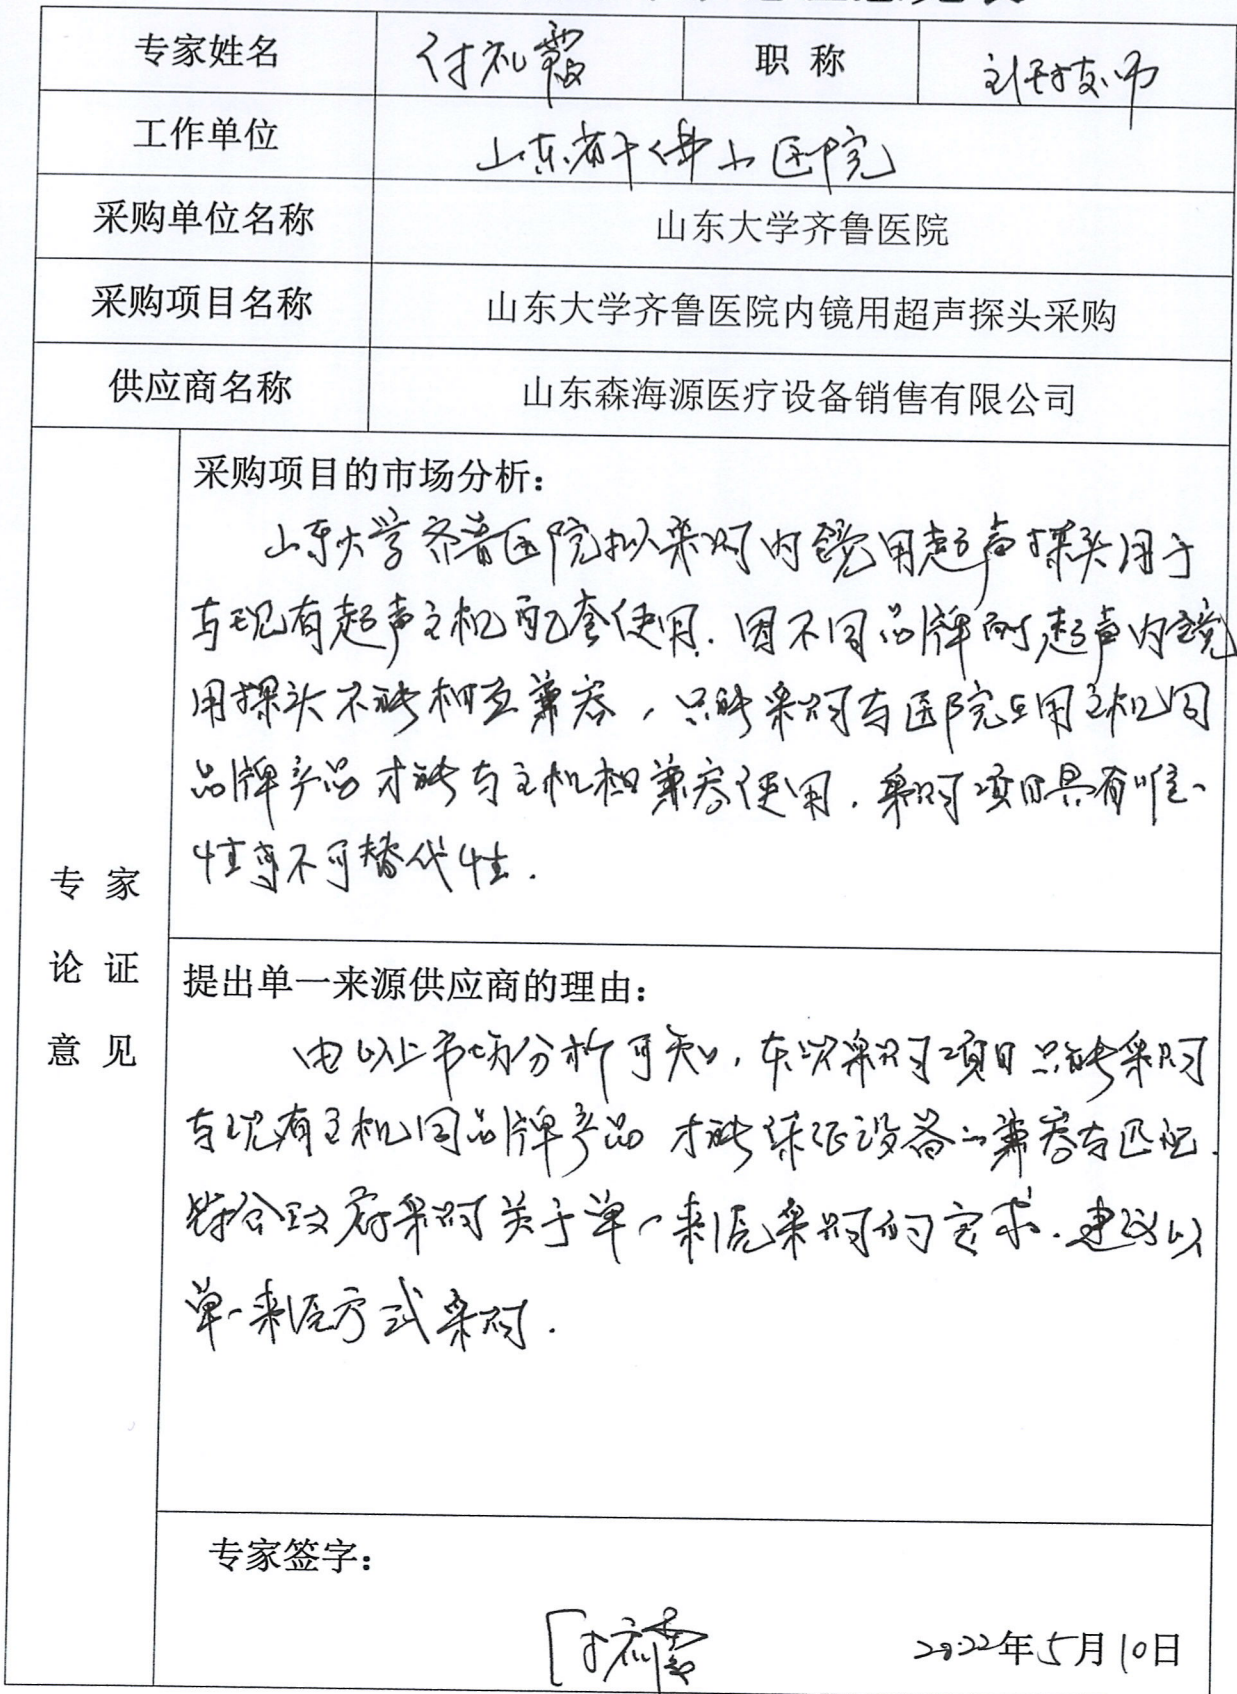 专家姓名 付礼霞 职称 副主任技师
工作单位 山东省千佛山医院
采购单位名称 山东大学齐鲁医院
采购项目名称 山东大学齐鲁医院内镜用超声探头采购
供应商名称 山东森海源医疗设备销售有限公司
专家论证意见
采购项目的市场分析：
山东大学齐鲁医院拟采购内镜用超声探头用于
与现有超声主机配套使用.因不同品牌的超声内镜
用探头不能相互兼容，只能采购与医院在用主机同
品牌产品才能与主机相兼容使用.采购项目具有唯一
性与不可替代性.
提出单一来源供应商的理由：
由以上市场分析可知，本次采购项目只能采购
与现有主机同品牌产品才能保证设备的兼容与匹配.
符合政府采购关于单一来源采购的要求.建议以
单一来源方式采购.
专家签字：
付礼霞 2022年5月10日